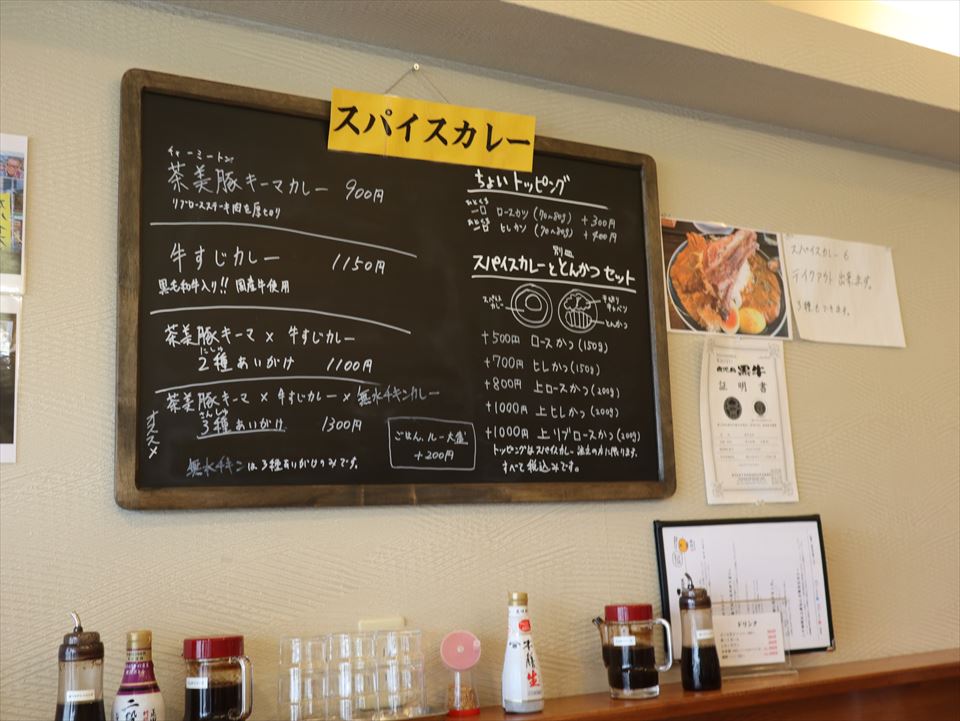 スパイスカレー
チャーミートン
茶美豚キーマカレー 900円
リブロースステーキ肉を厚切り
牛すじカレー 1150円
黒毛和牛入り!! 国産牛使用
茶美豚キーマ × 牛すじカレー
にしゅ
2種あいがけ 1100円
茶美豚キーマ × 牛すじカレー × 無水チキンカレー
さんしゅ
3種あいがけ 1300円
オススメ
無水チキンは3種あいがけのみです。
ごはん、ルー大盛
+200円
ちょいトッピング
ロースカツ (70~80g) +300円
ヒレカツ (70~80g) +400円
別皿
スパイスカレーととんかつセット
スパイス
カレー
千切り
キャベツ
とんかつ
+500円 ロースかつ (150g)
+700円 ヒレかつ (150g)
+800円 上ロースかつ (200g)
+1000円 上ヒレかつ (200g)
+1000円 上リブロースかつ (200g)
トッピングはスパイスカレー注文の方に限ります。
すべて税込みです。
スパイスカレーも
テイクアウト出来ます。
3種もできます。
鹿児島 黒牛
証明書
ドリンク